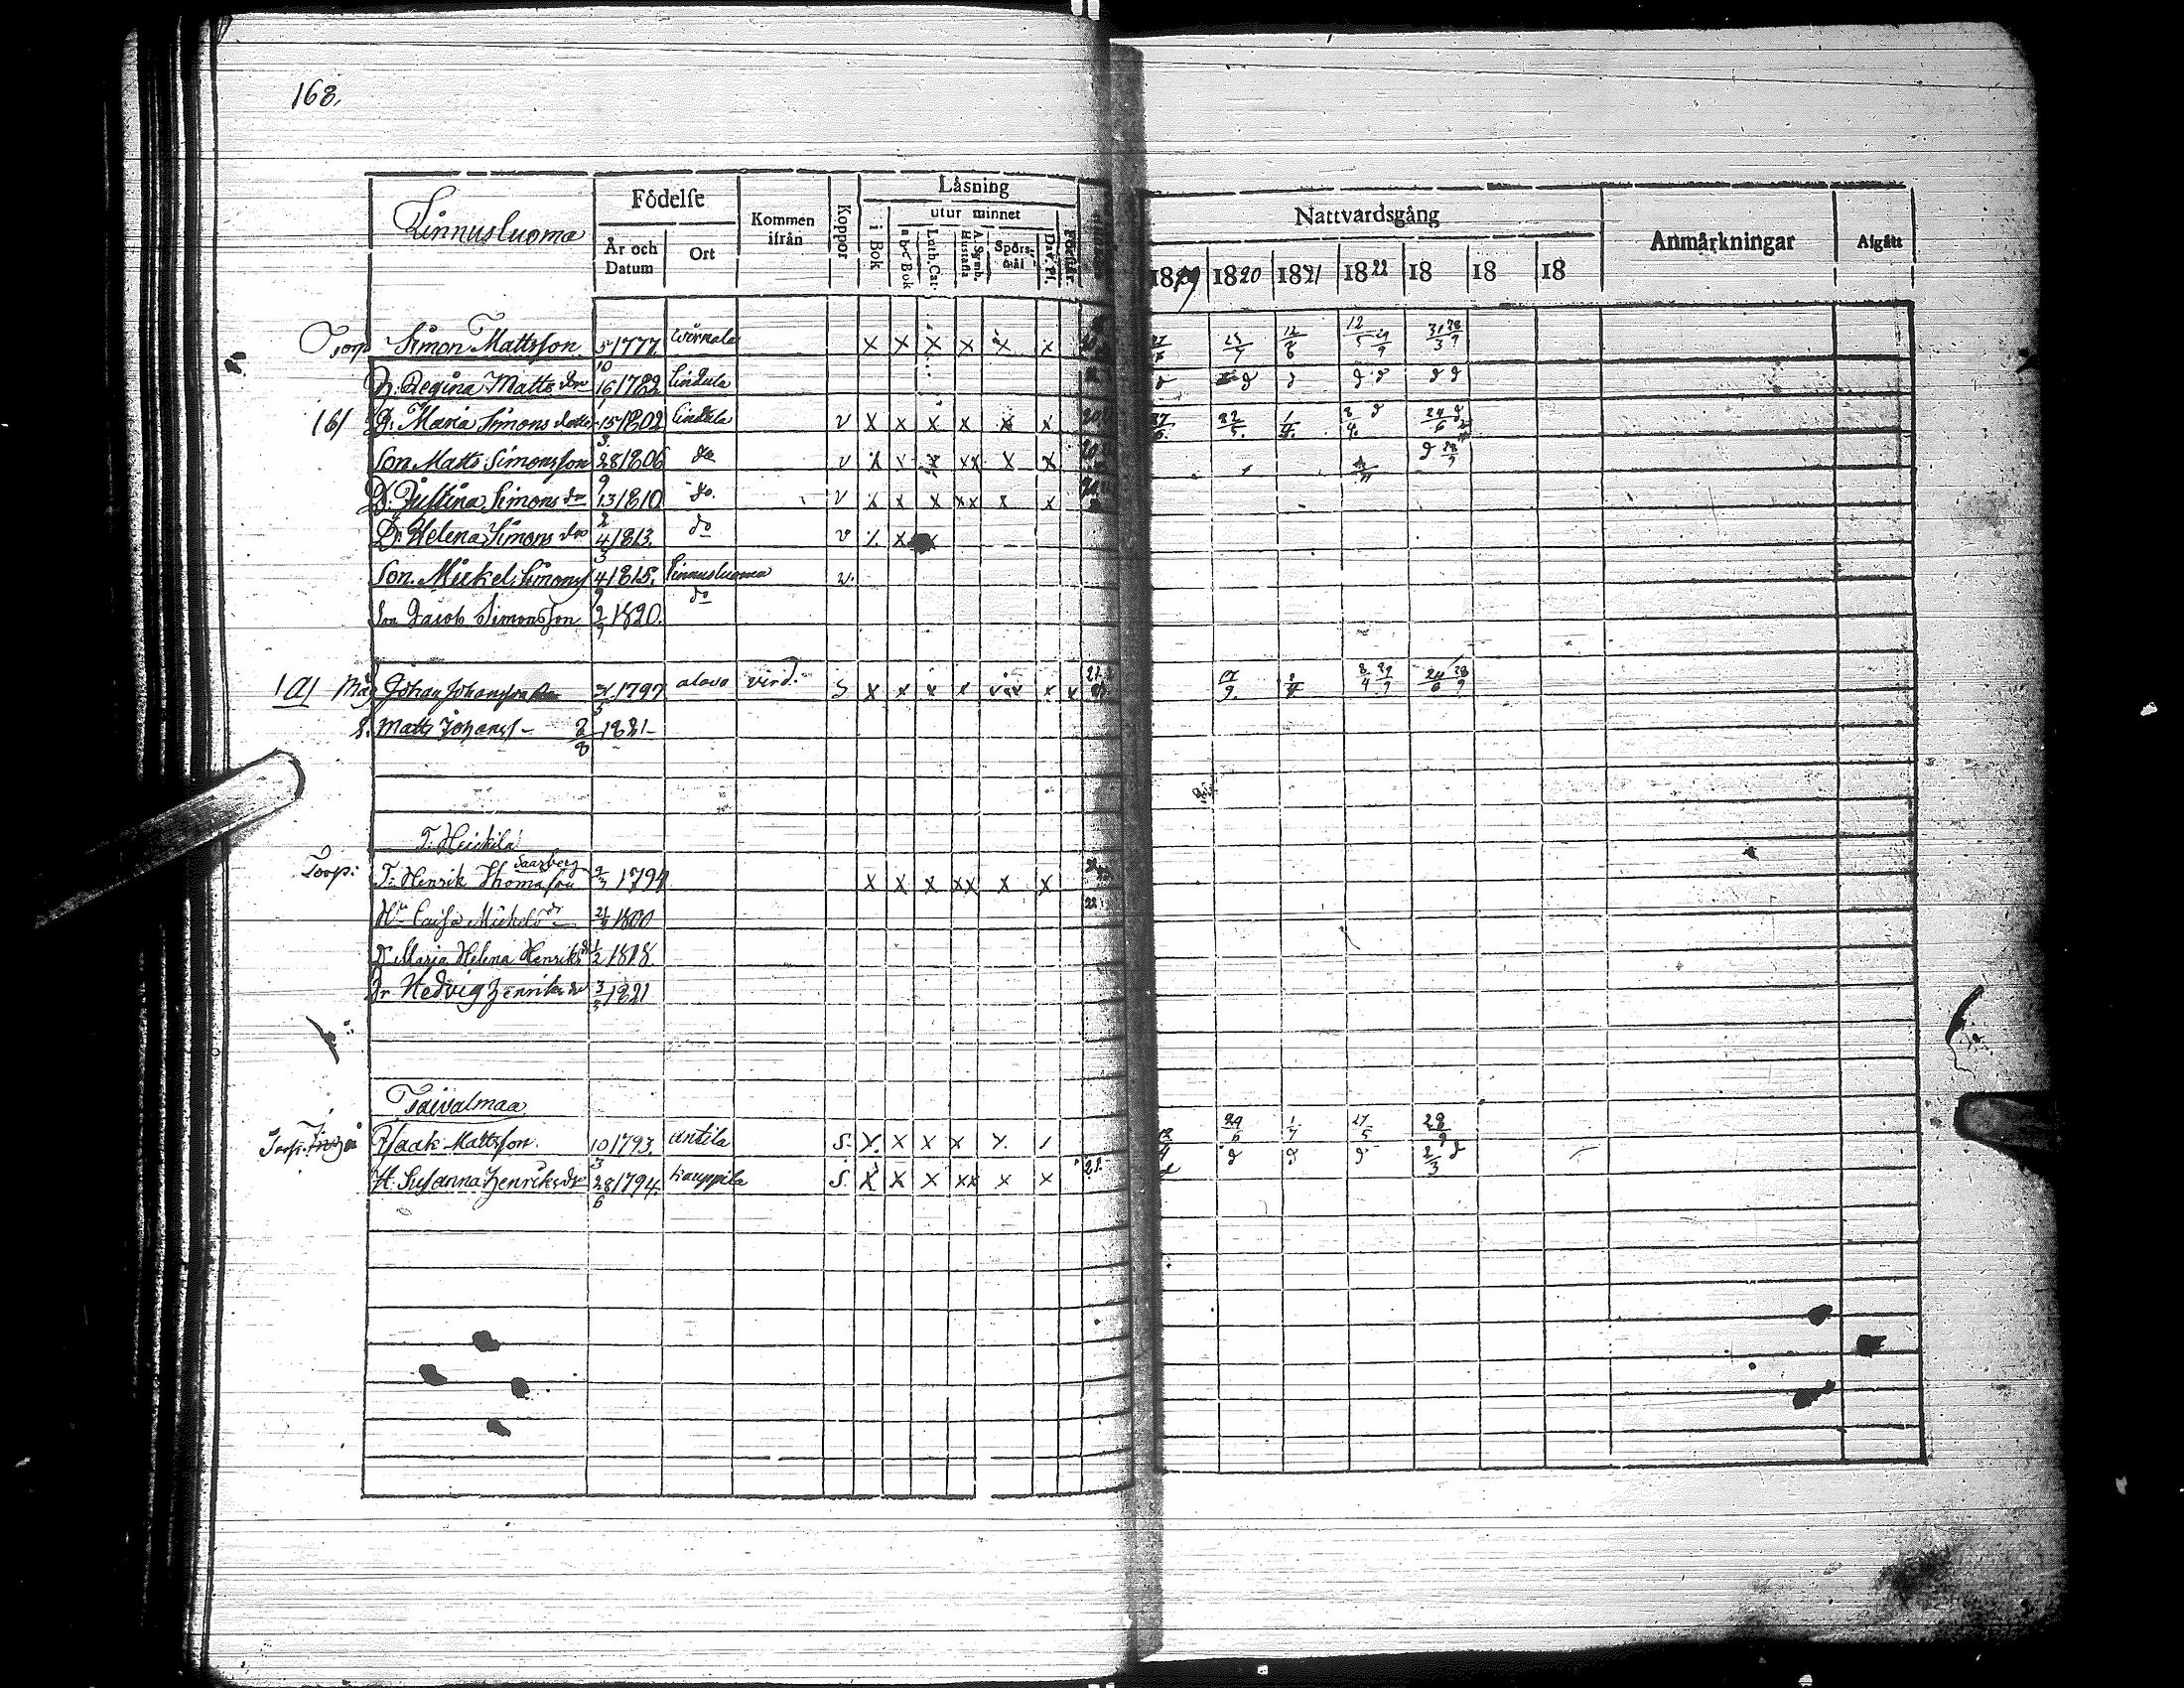 168.
Linnusluoma
Födelse
År och Datum
Ort
Kommen ifrån
Koppor
Läsning
i Bok
utur minnet
a b c Bok
Luth. Cat.
A. Symb. Hustafla
Spörsmål
Dav. Ps.
Förstår.
Nattvardsgång
1819 1820 1821 1822 18 18 18
Anmärkningar
Afgått
Torp Simon Mattsson 5/10 1777 x x x x x x 12/5 29/9 31/3 28/9
H. Regina Matts dr 16 1782 Lindula d d d d d d
161 D. Maria Simons dotter 15/3 1802 Lindula v x x x x x x 22/5
Son Matts Simonsson 28/9 1806 do v x x x xx x x d 28/9
D. Justina Simons dr 13/2 1810 do. v x x x xx x x
Dr Helena Simons dr 4/3 1813 do v x x
Son. Mickel Simonss 4/9 1815. Linnusluoma v.
Son Jacob Simonsson 2/9 1820. do
161 Måg Johan Johansson 1797 alavo vird. S x x x x x x x 8/4 29/9 24/6 28/9
S. Matts Johanss - 2/8 1821-
T. Heickilä
Torp: T. Henrik Thomasson Saarberg 1794 x x x xx x x
Hu Caisa Mickelsdr 1800 22
Dr Maria Helena Henriksdr 1/2 1818
Dr Hedvig Henriks dr 1821
Taivalmaa
Torp. Isaak Mattsson. 10/3 1793. antila S. x x x x x 24/6 1/7 27/5 28/9
H. Susanna Henriksdr 28/6 1794 Kauppila S. x x x xx x x 21. d d d 2/3 d